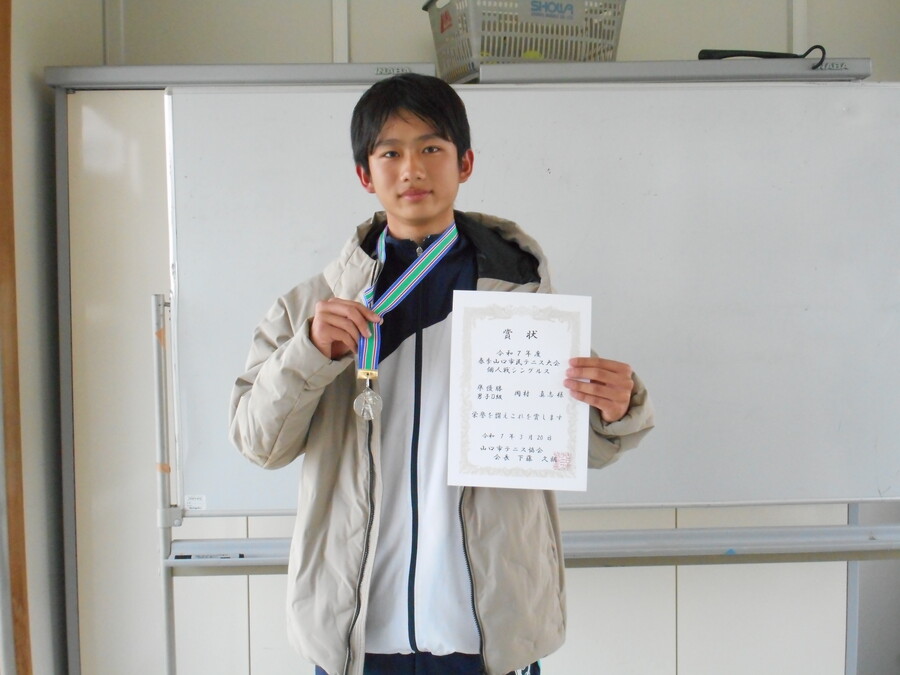 SHOWA
賞状
令和7年度
春季山口市民テニス大会
個人戦シングルス
準優勝
男子B級 岡村 真志様
栄誉を讃えこれを賞します
令和 7年 3月 20日
山口市テニス協会
会長 下藤 文誠